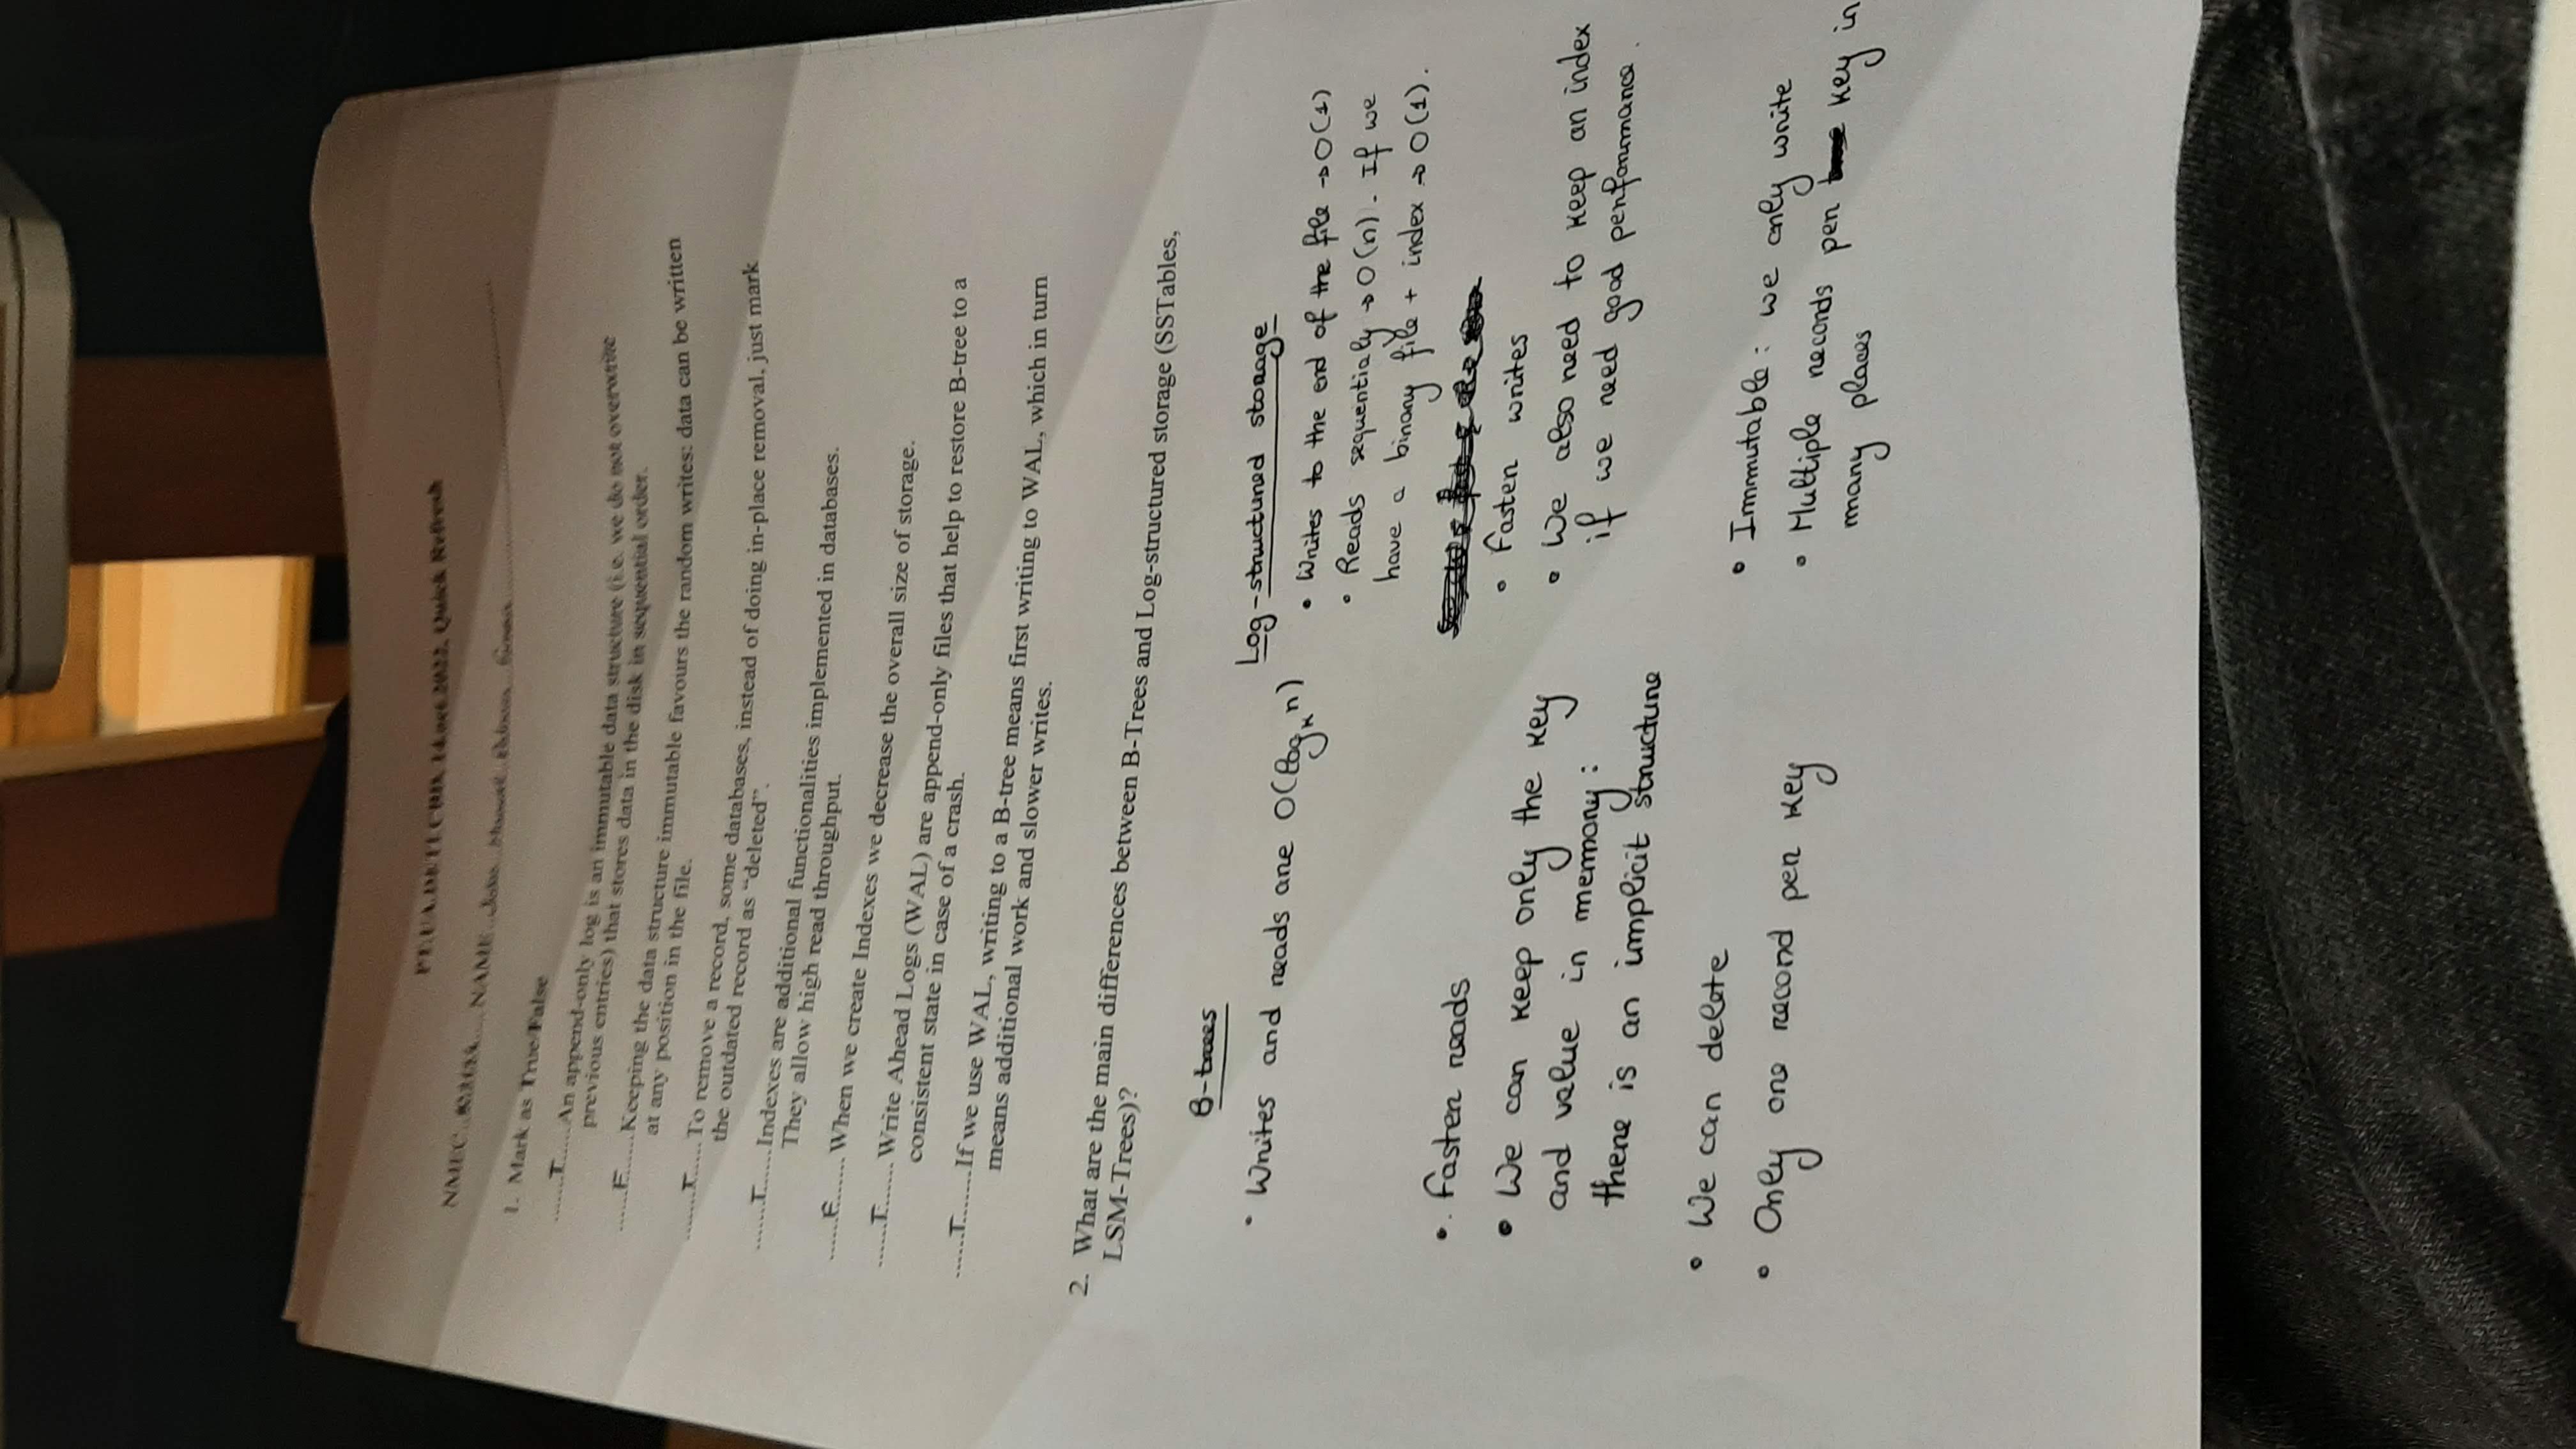 PT.UA.DETI.CBD, 14.oct.2022, Quick Refresh
NMEC NAME
1. Mark as True/False
.......T......An append-only log is an immutable data structure (i.e. we do not overwrite
previous entries) that stores data in the disk in sequential order.
......F......Keeping the data structure immutable favours the random writes: data can be written
at any position in the file.
.......T......To remove a record, some databases, instead of doing in-place removal, just mark
the outdated record as “deleted”.
.......T......Indexes are additional functionalities implemented in databases.
They allow high read throughput.
......F....... When we create Indexes we decrease the overall size of storage.
......T....... Write Ahead Logs (WAL) are append-only files that help to restore B-tree to a
consistent state in case of a crash.
......T.......If we use WAL, writing to a B-tree means first writing to WAL, which in turn
means additional work and slower writes.
2. What are the main differences between B-Trees and Log-structured storage (SSTables,
LSM-Trees)?
B-trees
• Writes and reads are O(logₖ n)
• Faster reads
• We can keep only the key
and value in memory:
there is an implicit structure
• We can delete
• Only one record per key
Log-structured storage
• Writes to the end of the file → O(1)
• Reads sequentialy → O(n). If we
have a binary file + index → O(1).
• Faster writes
• We also need to keep an index
if we need good performance.
• Immutable: we only write
• Multiple records per key in
many places